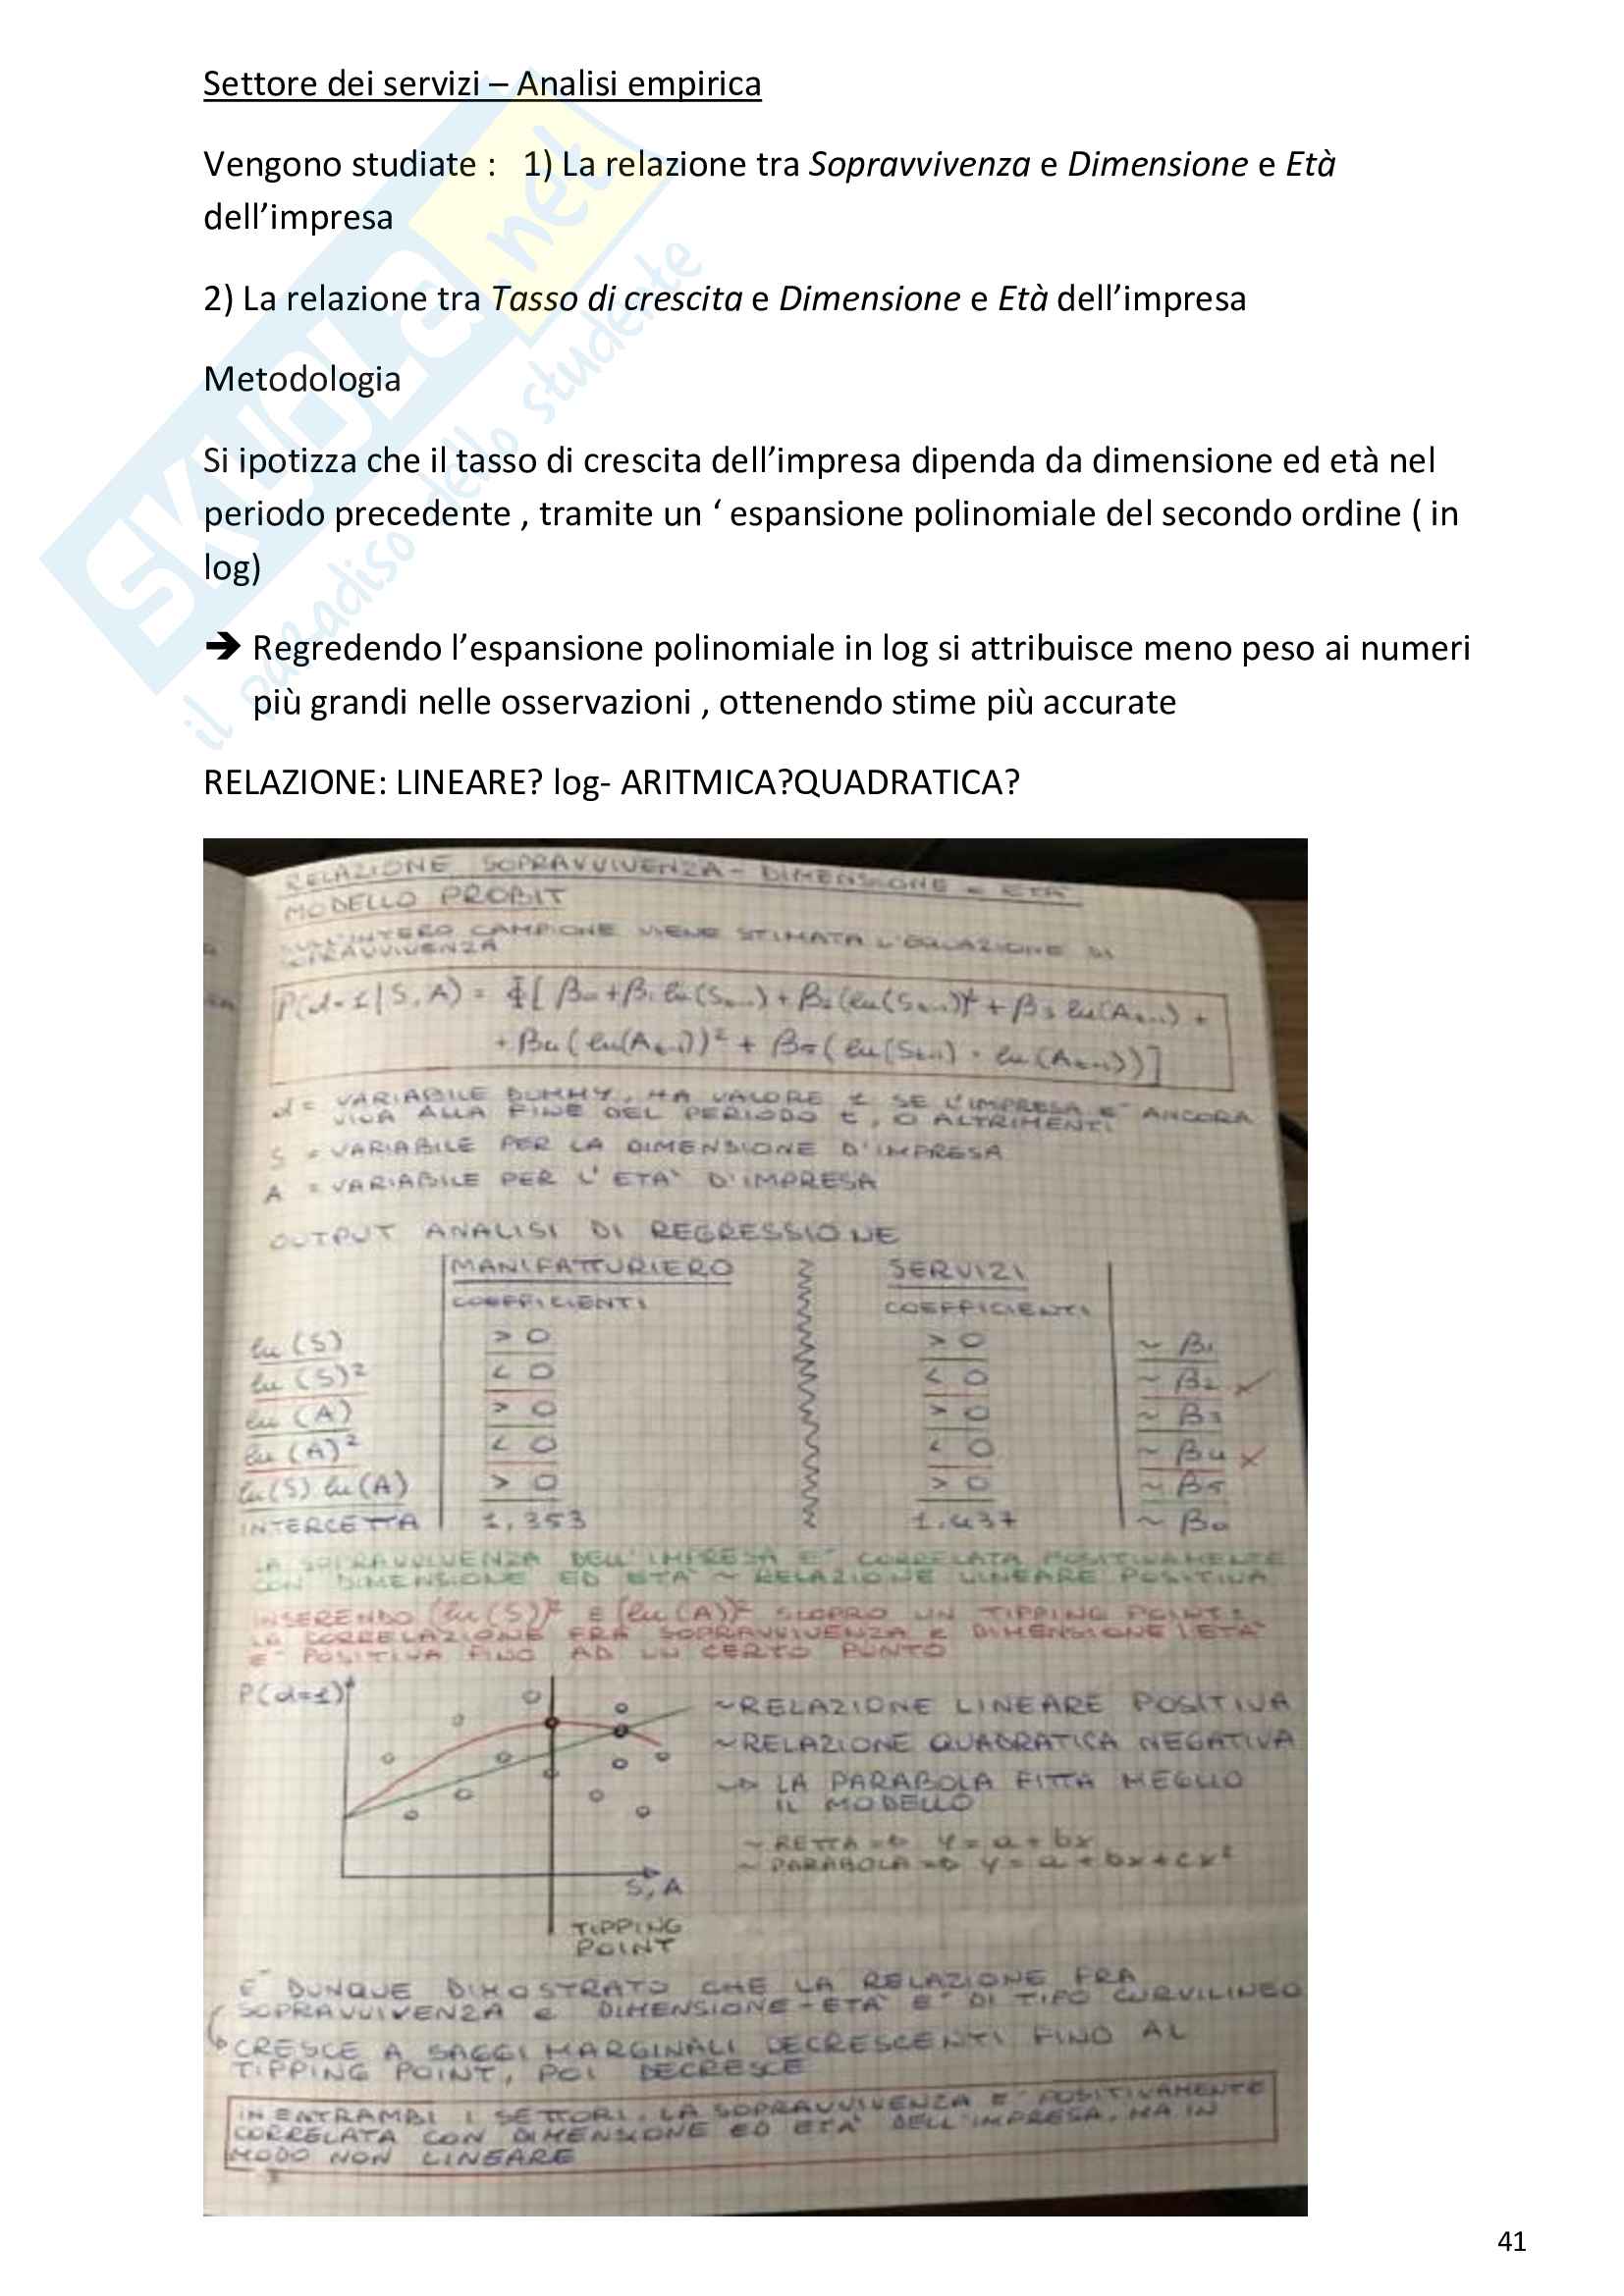 Settore dei servizi – Analisi empirica
Vengono studiate :   1) La relazione tra Sopravvivenza e Dimensione e Età
dell’impresa
2) La relazione tra Tasso di crescita e Dimensione e Età dell’impresa
Metodologia
Si ipotizza che il tasso di crescita dell’impresa dipenda da dimensione ed età nel
periodo precedente , tramite un ‘ espansione polinomiale del secondo ordine ( in
log)
➔ Regredendo l’espansione polinomiale in log si attribuisce meno peso ai numeri
più grandi nelle osservazioni , ottenendo stime più accurate
RELAZIONE: LINEARE? log- ARITMICA?QUADRATICA?
RELAZIONE SOPRAVVIVENZA - DIMENSIONE - ETA'
MODELLO PROBIT
SULL'INTERO CAMPIONE VIENE STIMATA L'EQUAZIONE DI
SOPRAVVIVENZA
P(d=1|S,A) = Φ[β₀+β₁ln(Sₜ₋₁)+β₂(ln(Sₜ₋₁))²+β₃ln(Aₜ₋₁)+
+β₄(ln(Aₜ₋₁))²+β₅(ln(Sₜ₋₁)·ln(Aₜ₋₁))]
d = VARIABILE DUMMY, HA VALORE 1 SE L'IMPRESA E' ANCORA
VIVA ALLA FINE DEL PERIODO t, 0 ALTRIMENTI
S = VARIABILE PER LA DIMENSIONE D'IMPRESA
A = VARIABILE PER L'ETA' D'IMPRESA
OUTPUT ANALISI DI REGRESSIONE
MANIFATTURIERO SERVIZI
COEFFICIENTI COEFFICIENTI
ln(S) > 0 > 0 ~ β₁
ln(S)² < 0 < 0 ~ β₂
ln(A) > 0 > 0 ~ β₃
ln(A)² < 0 < 0 ~ β₄
ln(S) ln(A) > 0 > 0 ~ β₅
INTERCETTA 1,353 1.437 ~ β₀
LA SOPRAVVIVENZA DELL'IMPRESA E' CORRELATA POSITIVAMENTE
CON DIMENSIONE ED ETA' ~ RELAZIONE LINEARE POSITIVA
INSERENDO (ln(S))² E (ln(A))² SCOPRO UN TIPPING POINT:
LA CORRELAZIONE FRA SOPRAVVIVENZA E DIMENSIONE/ETA'
E' POSITIVA FINO AD UN CERTO PUNTO
P(d=1)
~RELAZIONE LINEARE POSITIVA
~RELAZIONE QUADRATICA NEGATIVA
LA PARABOLA FITTA MEGLIO
IL MODELLO
~ RETTA => y = a + bx
~ PARABOLA => y = a + bx + cx²
S, A
TIPPING
POINT
E' DUNQUE DIMOSTRATO CHE LA RELAZIONE FRA
SOPRAVVIVENZA E DIMENSIONE-ETA' E' DI TIPO CURVILINEO
CRESCE A SAGGI MARGINALI DECRESCENTI FINO AL
TIPPING POINT, POI DECRESCE
IN ENTRAMBI I SETTORI, LA SOPRAVVIVENZA E' POSITIVAMENTE
CORRELATA CON DIMENSIONE ED ETA' DELL'IMPRESA, MA IN
MODO NON LINEARE
41
SKUOLA.net
il paradiso dello studente